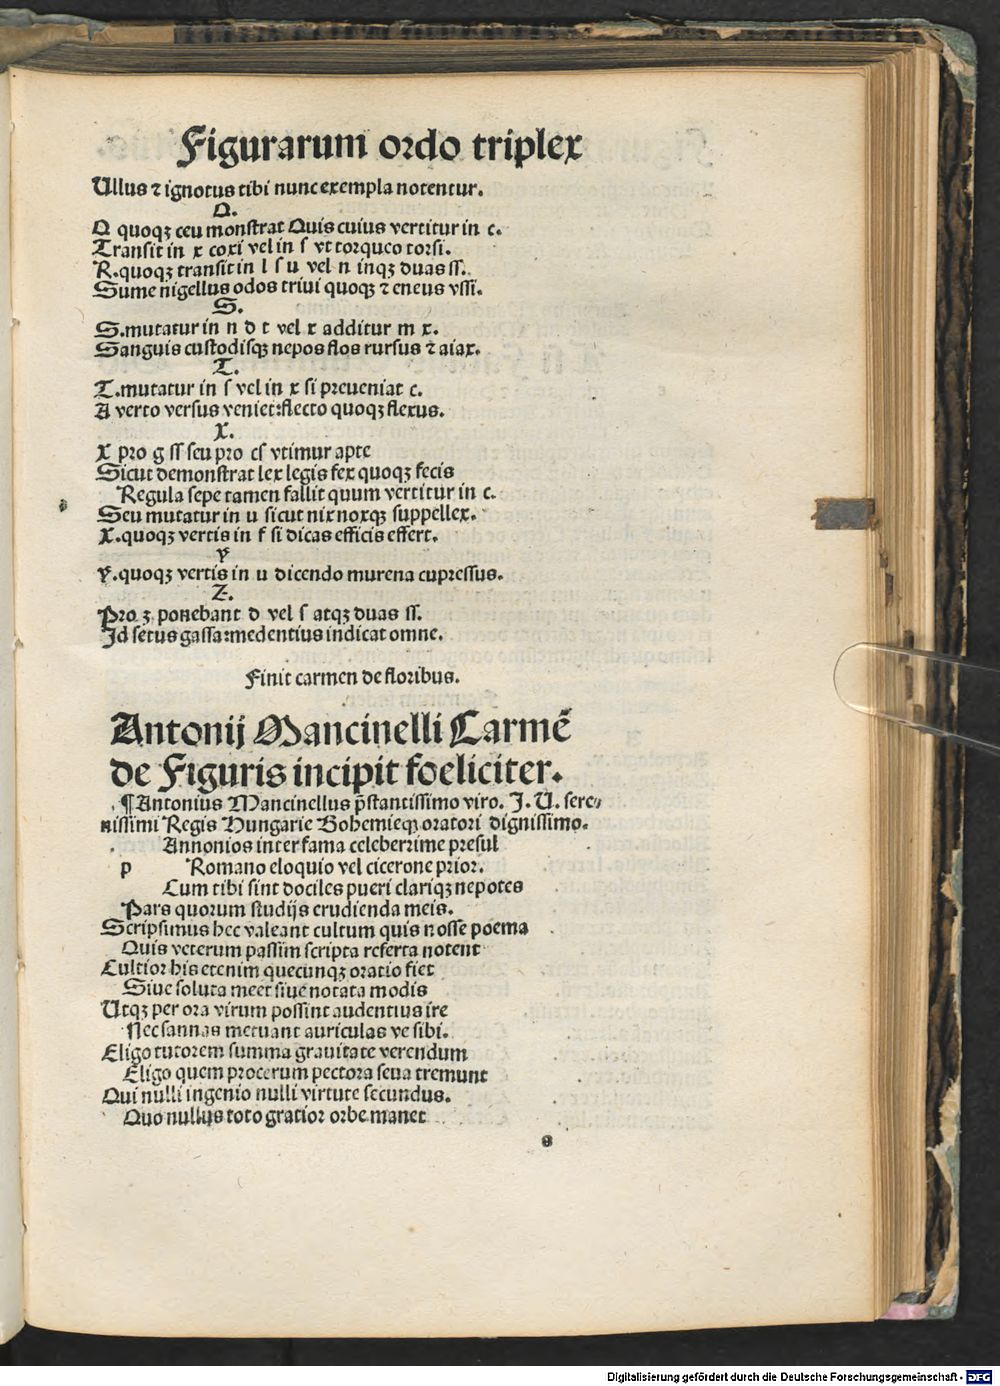 Figurarum ordo triplex
Ullus ⁊ ignotus tibi nunc exempla notentur.
Q.
Q quoqꝫ ceu monstrat Quis cuius vertitur in c.
Transit in x coxi vel in ſ vt torqueo torsi.
R.quoqꝫ transit in l ſ u vel n inqꝫ duas ſſ.
Sume nigellus odos trivi quoqꝫ ⁊ eneus vssi.
S.
S.mutatur in n d t vel r additur m x.
Sanguis custodisqꝫ nepos flos rursus ⁊ aiax.
T.
T.mutatur in ſ vel in x si preveniat c.
A verto versus veniet:flecto quoqꝫ flexus.
X.
X pro g ſſ seu pro cſ vtimur apte
Sicut demonstrat lex legis fex quoqꝫ fecis
Regula sepe tamen fallit quum vertitur in c.
Seu mutatur in u sicut nix noxqꝫ suppellex.
X.quoqꝫ vertis in f si dicas efficis effert.
Y
Y.quoqꝫ vertis in u dicendo murena cupressus.
Z.
Pro ʒ ponebant d vel ſ atqꝫ duas ſſ.
Id setus gassa:medentius indicat omne.
Finit carmen de floribus.
Antonij Mancinelli Carmē
de Figuris incipit foeliciter.
¶ Antonius Mancinellus p̄stantissimo viro. J. U. sere⸗
nissimi Regis Hungarie Bohemieqꝫ oratori dignissimo.
Annonios inter fama celeberrime presul
p Romano eloquio vel cicerone prior.
Cum tibi sint dociles pueri clariqꝫ nepotes
Pars quorum studijs erudienda meis.
Scripsimus hec valeant cultum quis nosse poema
Quis veterum passim scripta referta notent
Cultior his etenim quecunqꝫ oratio fiet
Sive soluta meet sive notata modis
Utqꝫ per ora virum possint audentius ire
Nec sannas metuant auriculas ve sibi.
Eligo tutorem summa gravitate verendum
Eligo quem procerum pectora seva tremunt
Qui nulli ingenio nulli virtute secundus.
Quo nullus toto gratior orbe manet
e
Digitalisierung gefördert durch die Deutsche Forschungsgemeinschaft - DFG